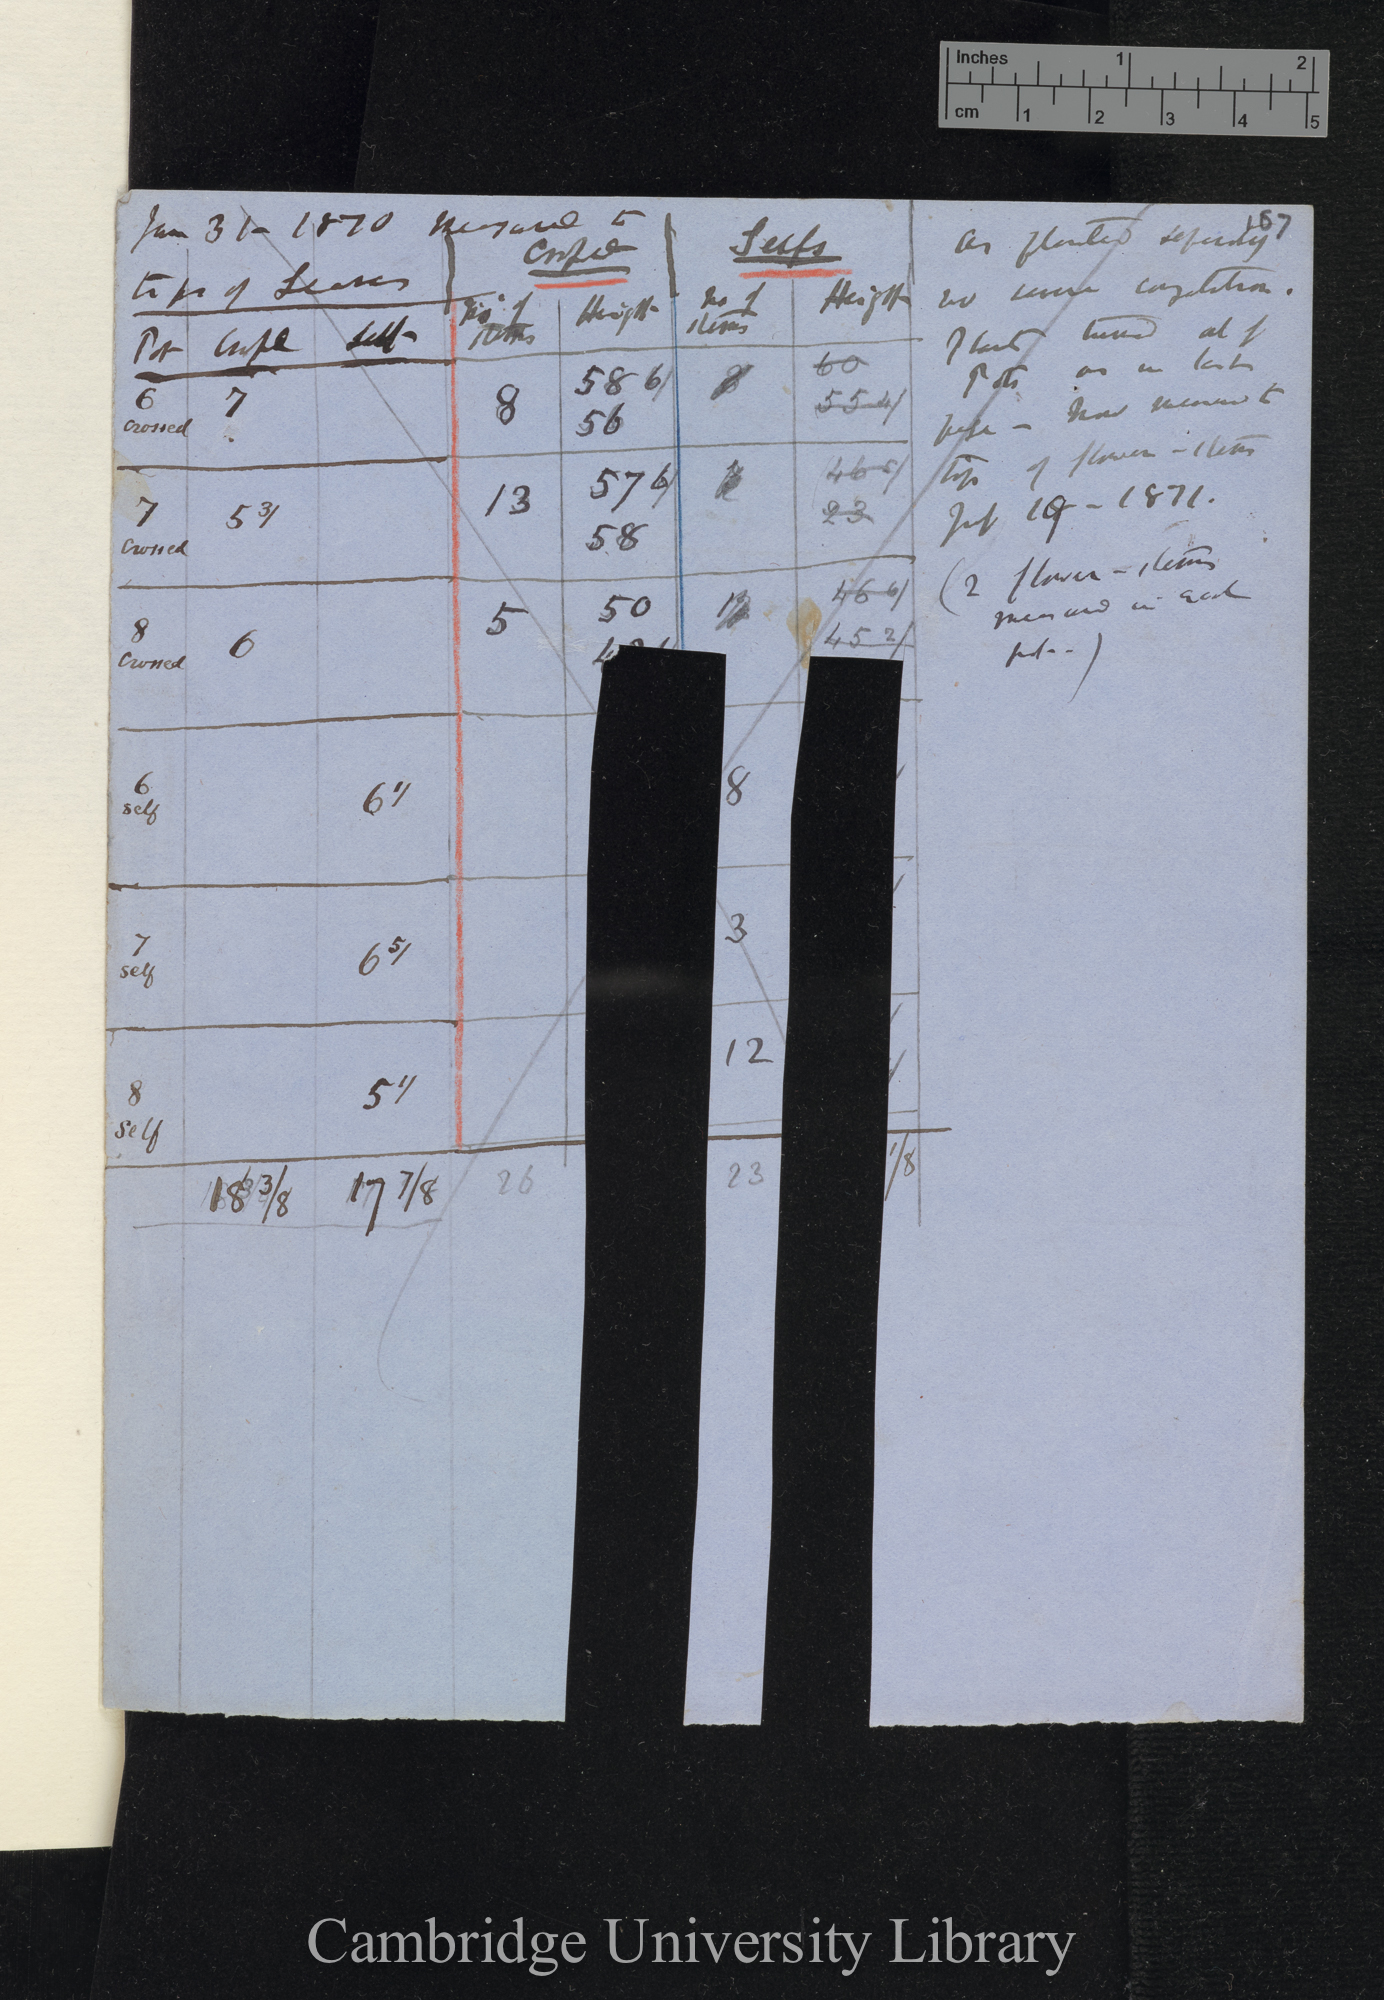 Inches 1 2
cm 1 2 3 4 5
187
Jan 31 - 1870 Measured to
tips of Leaves
Crossed Selfs
Pot Crossed Self
No. of stems Height No of stems Height
6 crossed 7 8 58 6/ 8 60
56 55 4/
7 crossed 5 3/ 13 57 6/ 46 5/
58 23
8 crossed 6 5 50 12 46 6/
45 2/
6 self 6 1/ 8
7 self 6 5/ 3
8 self 5 1/ 12
18 3/8 17 7/8 26 23 1/8
as planted separately
no severe competition.
Plants turned out of
Pots as in last
page - Now measured to
tips of flower-stems
July 19 - 1871.
(2 flower-stems
measured in each
pot--)
Cambridge University Library